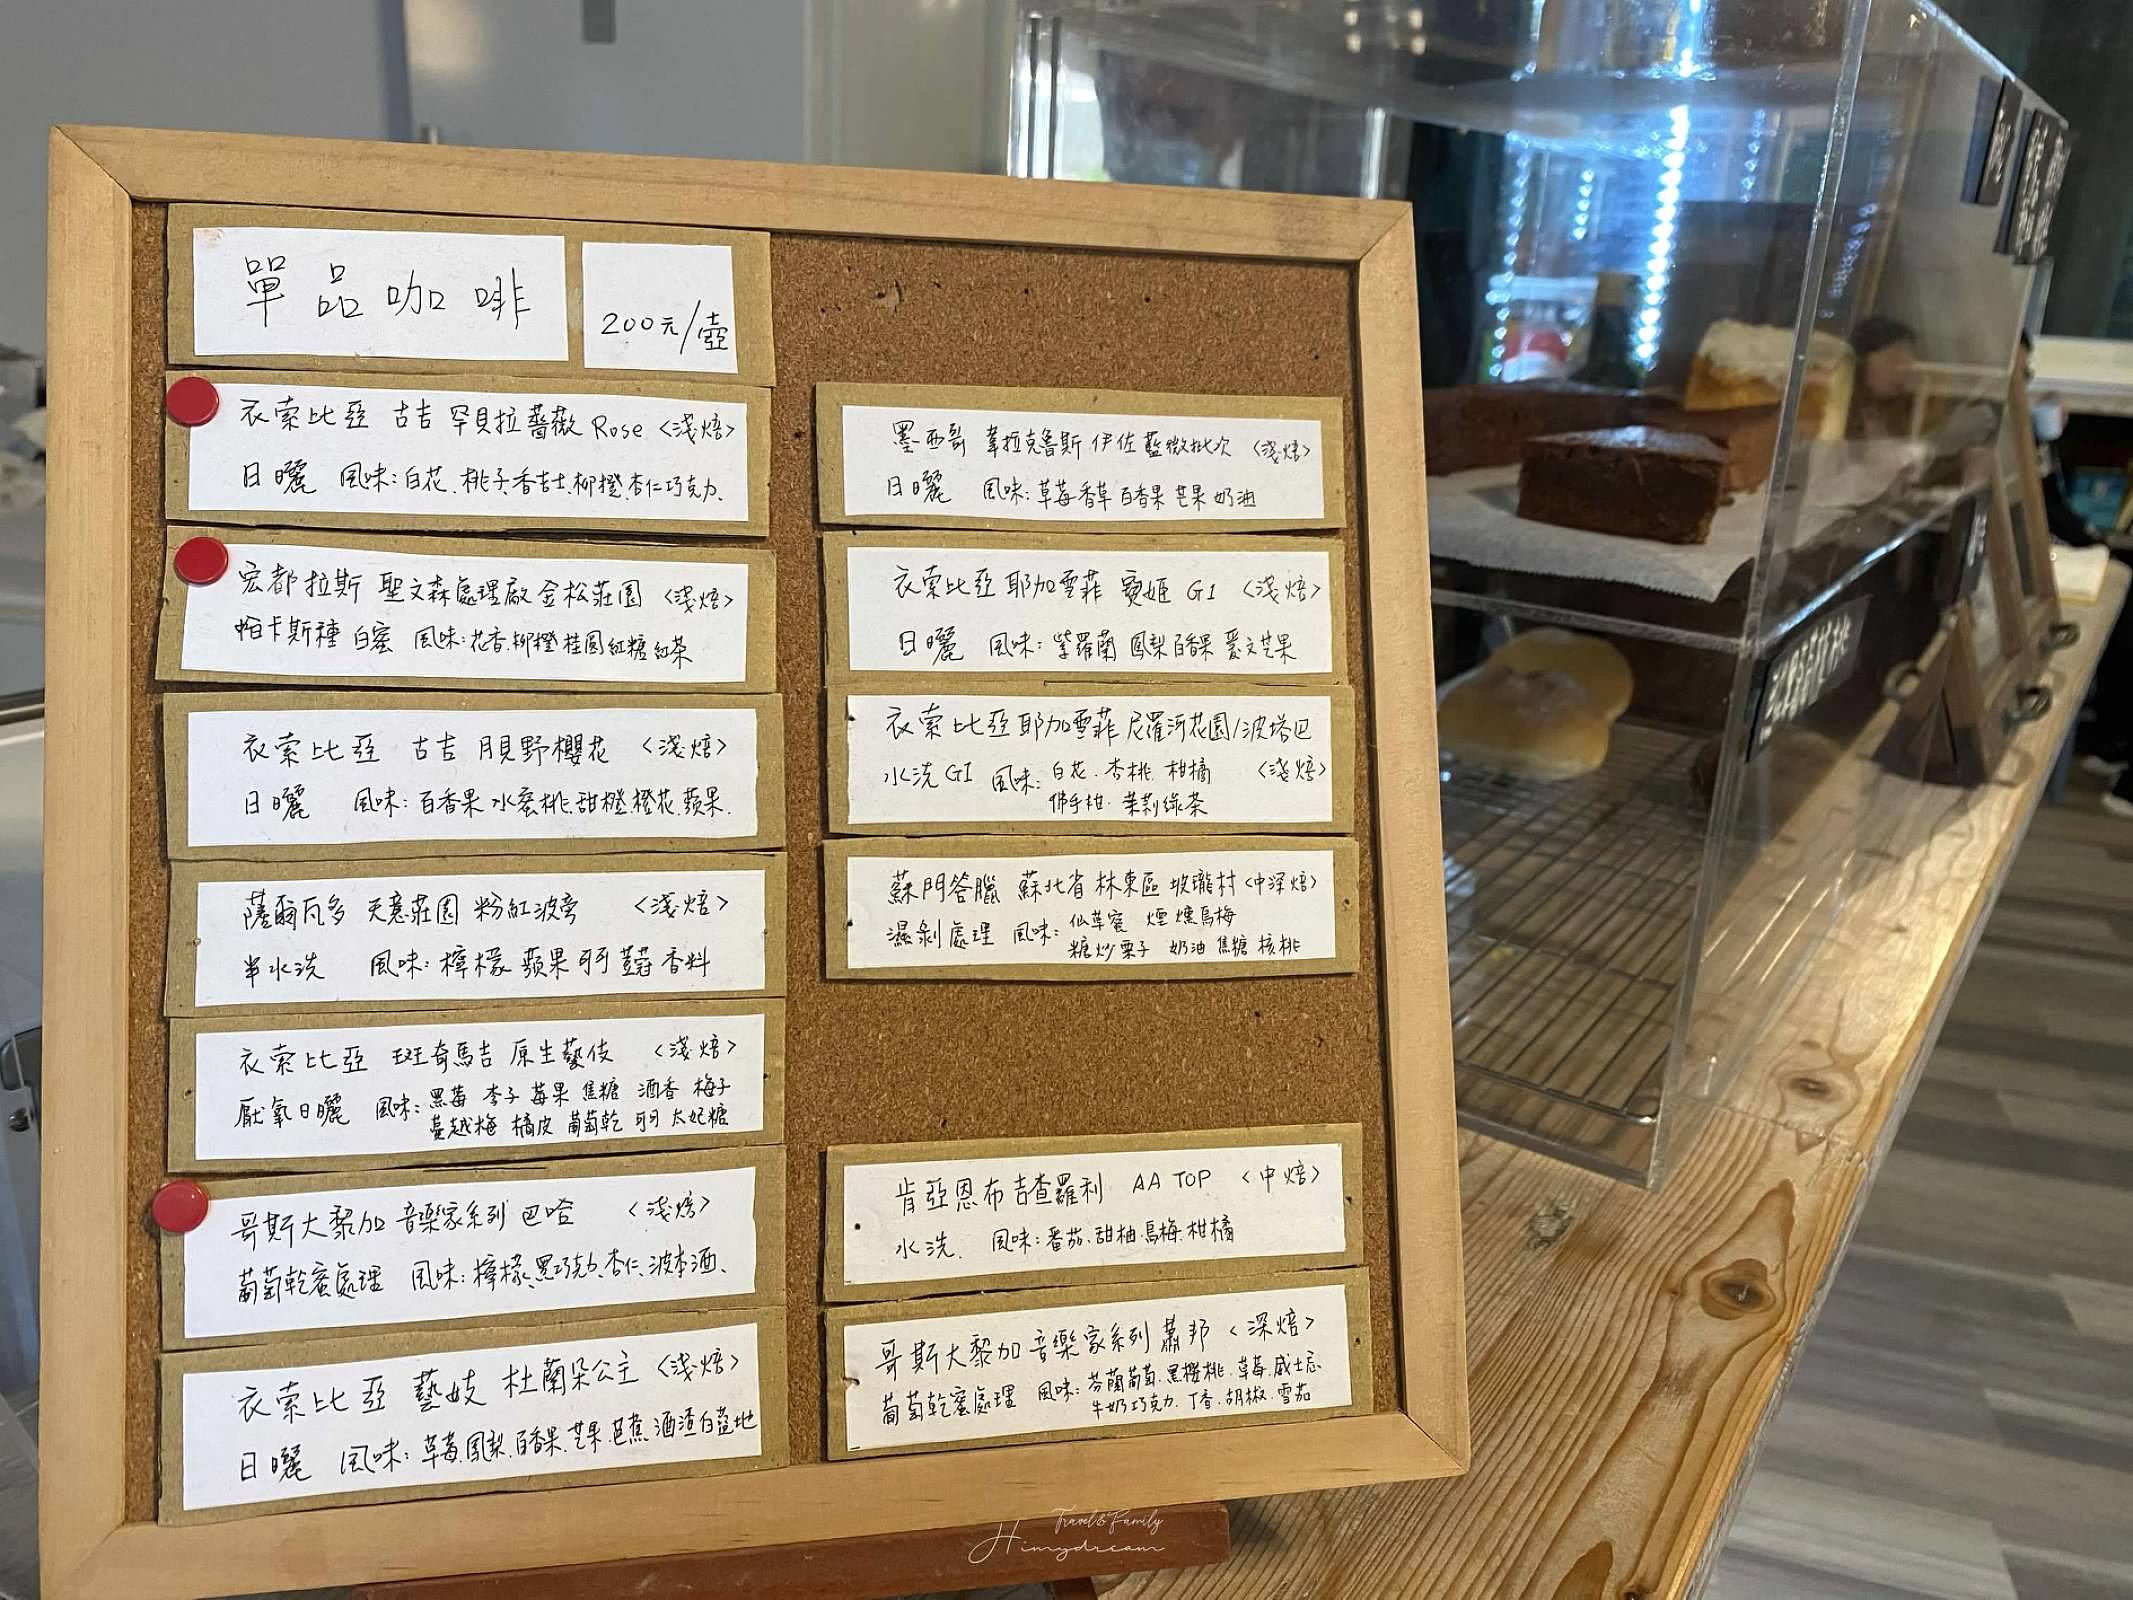 單品咖啡
200元/壺
衣索比亞 古吉 罕貝拉薔薇 Rose <淺焙>
日曬 風味:白花.桃子.香吉士.柳橙.杏仁巧克力.
宏都拉斯 聖文森處理廠金松莊園 <淺焙>
帕卡斯種 白蜜 風味:花香.柳橙 桂圓紅糖紅茶
衣索比亞 古吉 月見野櫻花 <淺焙>
日曬 風味:百香果 水蜜桃.甜橙.橙花.蘋果.
薩爾瓦多 天意莊園 粉紅波旁 <淺焙>
半水洗 風味:檸檬 蘋果 可可 荳蔻 香料
衣索比亞 班奇馬吉 原生藝伎 <淺焙>
厭氧日曬 風味:黑莓 李子 莓果 焦糖 酒香 梅子
蔓越梅 橘皮 葡萄乾 可可 太妃糖
哥斯大黎加 音樂家系列 巴哈 <淺焙>
葡萄乾蜜處理 風味:檸檬、黑巧克力、杏仁、波本酒、
衣索比亞 藝妓 杜蘭朵公主 <淺焙>
日曬 風味:草莓.鳳梨.百香果.芒果.芭蕉.酒渣白蘭地
墨西哥 韋拉克魯斯 伊佐藍微批次 <淺焙>
日曬 風味:草莓 香草 百香果 芒果 奶油
衣索比亞 耶加雪菲 寶姬 G1 <淺焙>
日曬 風味:紫羅蘭 鳳梨 百香果 愛文芒果
衣索比亞耶加雪菲 尼羅河花園/波塔巴
水洗G1 風味:白花.杏桃.柑橘 <淺焙>
佛手柑.茉莉綠茶
蘇門答臘 蘇北省 林東區 坡瓏村<中深焙>
濕剝處理 風味:仙草蜜 煙燻烏梅
糖炒栗子 奶油 焦糖 核桃
肯亞恩布吉查羅利 AA TOP <中焙>
水洗. 風味:番茄.甜柚.烏梅.柑橘
哥斯大黎加 音樂家系列 蕭邦 <深焙>
葡萄乾蜜處理 風味:芬蘭葡萄.黑櫻桃.草莓.威士忌
牛奶巧克力.丁香.胡椒.雪茄
Travel&Family
Himydream